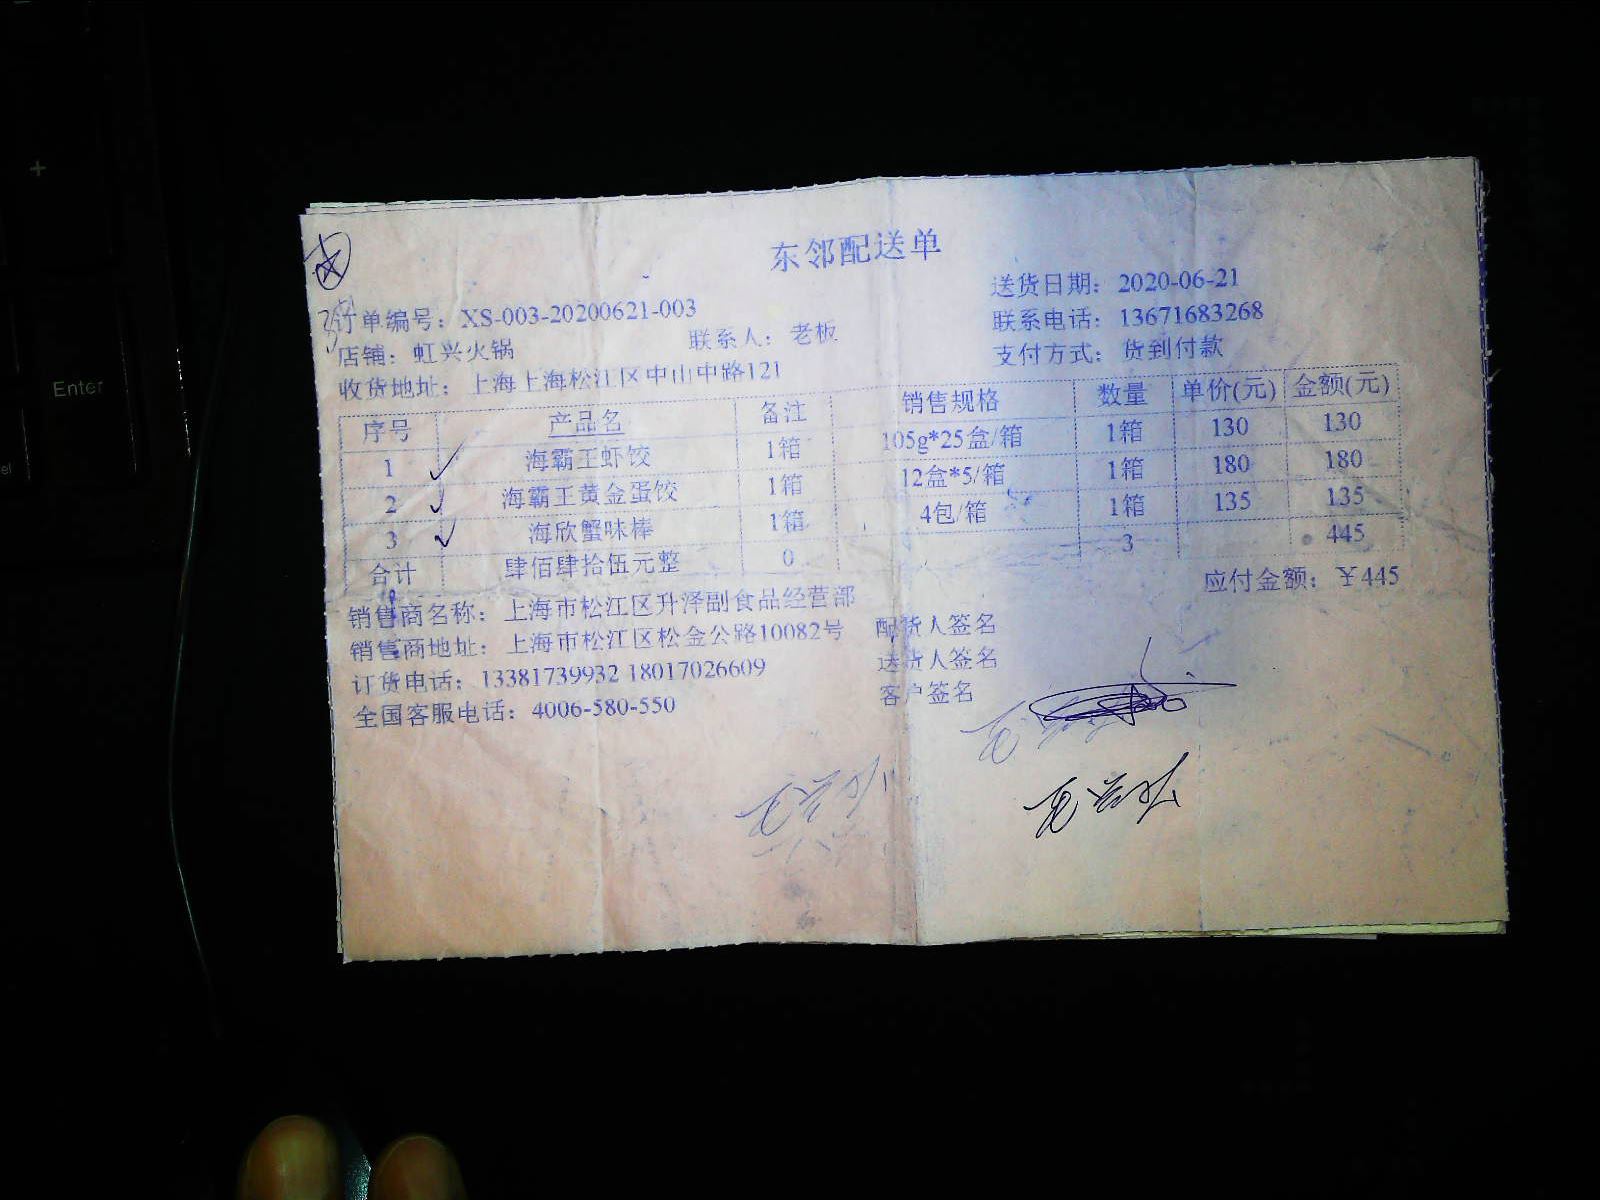 东邻配送单
订单编号：XS-003-20200621-003
送货日期：2020-06-21
店铺：虹兴火锅 联系人：老板 联系电话：13671683268
收货地址：上海上海松江区中山中路121 支付方式：货到付款
序号 产品名 备注 销售规格 数量 单价(元) 金额(元)
1 海霸王虾饺 1箱 105g*25盒/箱 1箱 130 130
2 海霸王黄金蛋饺 1箱 12盒*5/箱 1箱 180 180
3 海欣蟹味棒 1箱 4包/箱 1箱 135 135
合计 肆佰肆拾伍元整 0 3 445
应付金额：￥445
销售商名称：上海市松江区升泽副食品经营部 配货人签名
销售商地址：上海市松江区松金公路10082号 送货人签名
订货电话：13381739932 18017026609 客户签名
全国客服电话：4006-580-550
+
Enter